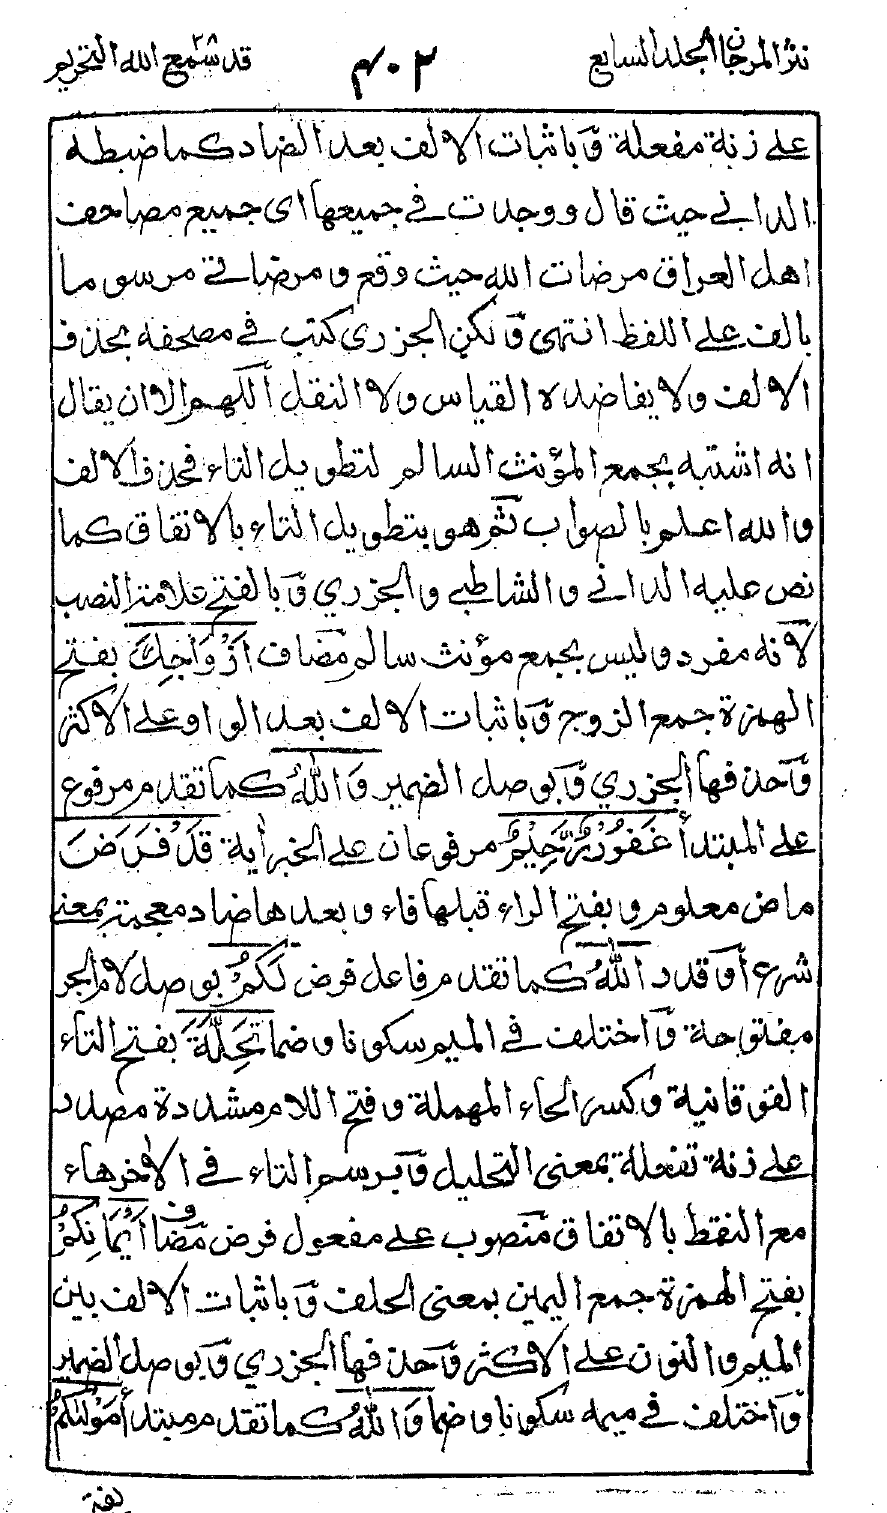 نثر المرجان المجلد السابع
٤٠٢
قد سمع الله ٢٨ التحريم
على زنة مفعلة وباثبات الالف بعد الضاد كما ضبطه
الدانى حيث قال ووجدت فى جميعها اى جميع مصاحف
اهل العراق مرضات الله حيث وقع ومرضاتى مرسوما
بالف على اللفظ انتهى ولكن الجزرى كتب فى مصحفه بحذف
الالف ولا يفاضده القياس ولا النقل اللهم الا ان يقال
انه اشتبه بجمع المؤنث السالم لتطويل التاء فحذف الالف
والله اعلم بالصواب ثم هو بتطويل التاء بالاتفاق كما
نص عليه الدانى والشاطبى والجزرى وبالفتح علامة النصب
لانه مفرد وليس بجمع مؤنث سالم مضاف اَزْوَاجِكَ بفتح
الهمزة جمع الزوج وباثبات الالف بعد الواو على الاكثر
وحذفها الجزرى وبوصل الضمير وَاللهُ كما تقدم مرفوع
على المبتدأ غَفُورٌ رَّحِيْمٌ مرفوعان على الخبر اية قَدْ فَرَضَ
ماض معلوم وبفتح الراء قبلها فاء وبعدها ضاد معجمة بمعنى
شرع أو قدد اللهُ كما تقدم فاعل فرض لَكُمْ بوصل لام الجر
مفتوحة واختلف فى الميم سكونا وضما تَحِلَّةَ بفتح التاء
الفوقانية وكسر الحاء المهملة وفتح اللام مشددة مصدر
على زنة تفعلة بمعنى التحليل وبرسم التاء فى الاخر هاء
مع النقط بالاتفاق منصوب على مفعول فرض مضاف اَيْمَانِكُمْ
بفتح الهمزة جمع اليمين بمعنى الحلف وباثبات الالف بين
الميم والنون على الاكثر وحذفها الجزرى وبوصل الضمير
واختلف فى ميمه سكونا وضما وَاللهُ كما تقدم مبتدأ مَوْلٰىكُمْ